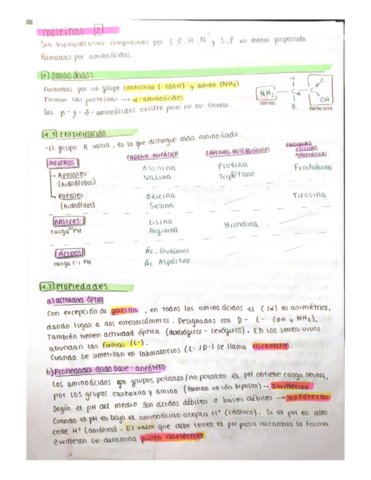 Proteínas [2]
Son biomoléculas compuestas por C, O, H, N y S, P en menor proporción.
Formadas por aminoácidos.
Aminoácidos
Formados por un grupo carboxilo (-COOH) y amino (NH2).
Forman las proteínas → α-aminoácidos.
Los β - γ - δ - aminoácidos existen pero no las forman.
NH2 - C - C
O
OH
H
R
amino
carboxilo
Clasificación
El grupo R varía, es lo que distingue cada aminoácido.
CADENA ALIFÁTICA
CADENAS HETEROCÍCLICAS
AROMÁTICAS
NEUTROS
- Apolares: (hidrófobos)
Alanina
Valina
Prolina
Triptófano
Fenilalanina
- Polares: (hidrófilos)
Serina
Tirosina
BÁSICOS: carga + PH
Lisina
Arginina
Histidina
ÁCIDOS: carga (-) PH
Ác. Glutámico
Ác. Aspártico
Propiedades
a) actividad óptica
Con excepción de glicina, en todos los aminoácidos el C (α) es asimétrico,
dando lugar a dos esteroisómeros. Designados con D - L - (OH y NH2).
También tienen actividad óptica (dextrógiros - levógiros). En los seres vivos
abundan las formas (L-).
Cuando se sintetizan en laboratorios (L- / D-) se llama racematos.
b) Propiedades ácido base: anfótero
Los aminoácidos grupos polares/no polares el pH obtiene carga neutra,
por los grupos carboxilo y amino (forman unión bipolar) → Zwitterion
Según el pH del medio son ácidos débiles o bases débiles → anfóteros
Cuando el pH es bajo el aminoácido acepta H+ (catiónico). Si el pH es alto
cede H+ (aniónico). El valor que debe tener el pH para alcanzar la forma
Zwitterion se denomina punto isoeléctrico.